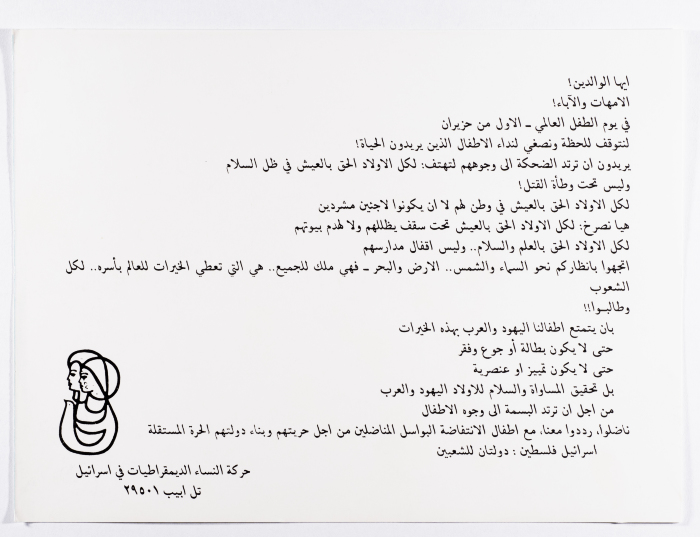 ايها الوالدين!
الامهات والآباء!
في يوم الطفل العالمي ــ الاول من حزيران
لنتوقف للحظة ونصغي لنداء الاطفال الذين يريدون الحياة!
يريدون ان ترتد الضحكة الى وجوههم لتهتف: لكل الاولاد الحق بالعيش في ظل السلام
وليس تحت وطأة القتل!
لكل الاولاد الحق بالعيش في وطن لهم لا ان يكونوا لاجئين مشردين
هيا نصرخ: لكل الاولاد الحق بالعيش تحت سقف يظللهم ولا لهدم بيوتهم
لكل الاولاد الحق بالعلم والسلام.. وليس اقفال مدارسهم
اتجهوا بانظاركم نحو السماء والشمس.. الارض والبحر ــ فهي ملك للجميع.. هي التي تعطي الخيرات للعالم بأسره.. لكل
الشعوب
وطالبــوا!!
بان يتمتع اطفالنا اليهود والعرب بهذه الخيرات
حتى لا يكون بطالة أو جوع وفقر
حتى لا يكون تمييز او عنصرية
بل تحقيق المساواة والسلام للاولاد اليهود والعرب
من اجل ان ترتد البسمة الى وجوه الاطفال
ناضلوا، رددوا معنا، مع اطفال الانتفاضة البواسل المناضلين من اجل حريتهم وبناء دولتهم الحرة المستقلة
اسرائيل فلسطين : دولتان للشعبين
حركة النساء الديمقراطيات في اسرائيل
تل ابيب ٢٩٥٠١